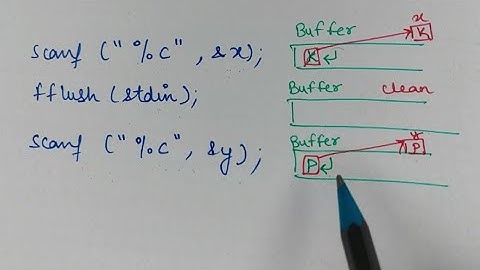 Buffer x
scanf ("%c", &x); K↵ K
Buffer clean
fflush (stdin);
Buffer y
scanf ("%c", &y); P↵ P